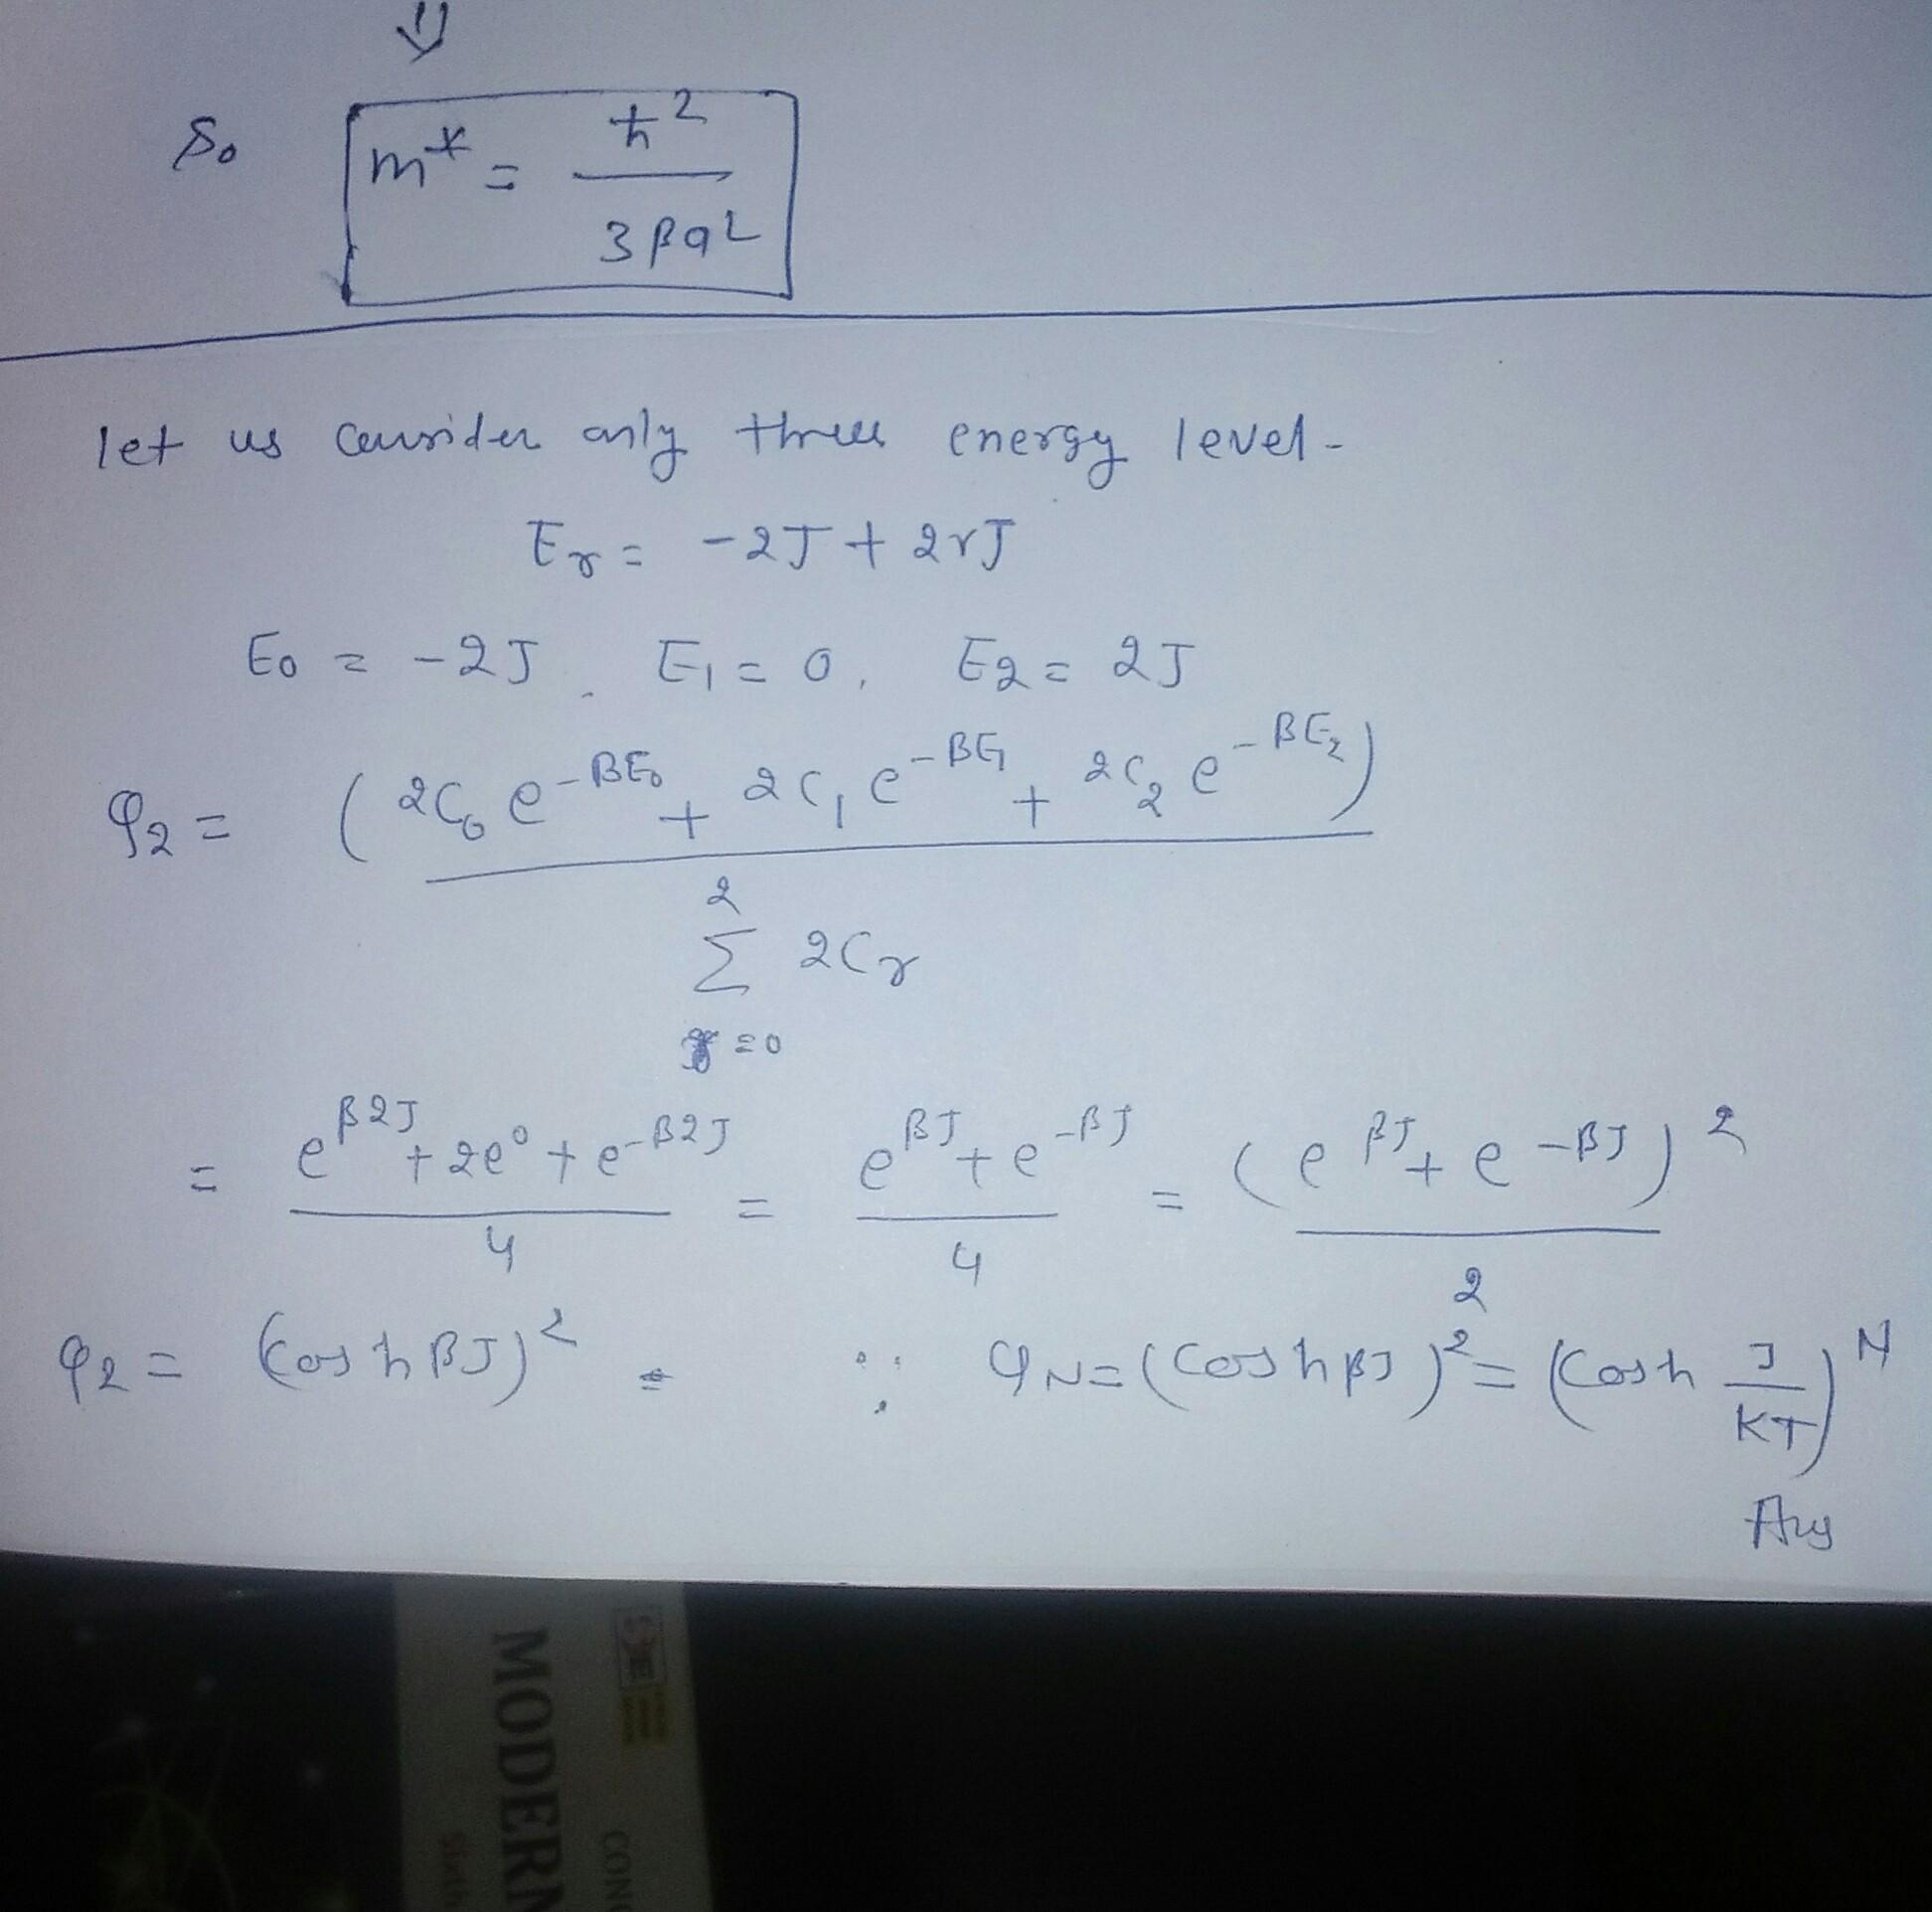 ⇓
So m* = ħ² / 3βa²
let us consider only three energy level -
Er = -2J + 2rJ
E0 = -2J, E1 = 0, E2 = 2J
φ2 = (2C0 e^-βE0 + 2C1 e^-βE1 + 2C2 e^-βE2) / Σ_{r=0}^{2} 2Cr
= (e^β2J + 2e^0 + e^-β2J) / 4 = (e^βJ + e^-βJ) / 4 = (e^βJ + e^-βJ)² / 2
φ2 = (Cosh βJ)² = ∴ φN = (Cosh βJ)² = (Cosh J/KT)^N
Ans
MODERN
CON
Sixth